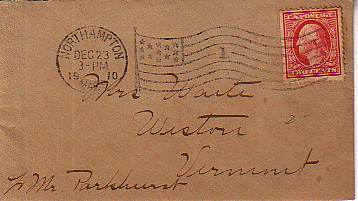 NORTHAMPTON
DEC 23
3-PM
19 10
MASS.
1
U.S. POSTAGE
TWO CENTS
Mrs Waite
Weston
Vermont
Mr. Parkhurst